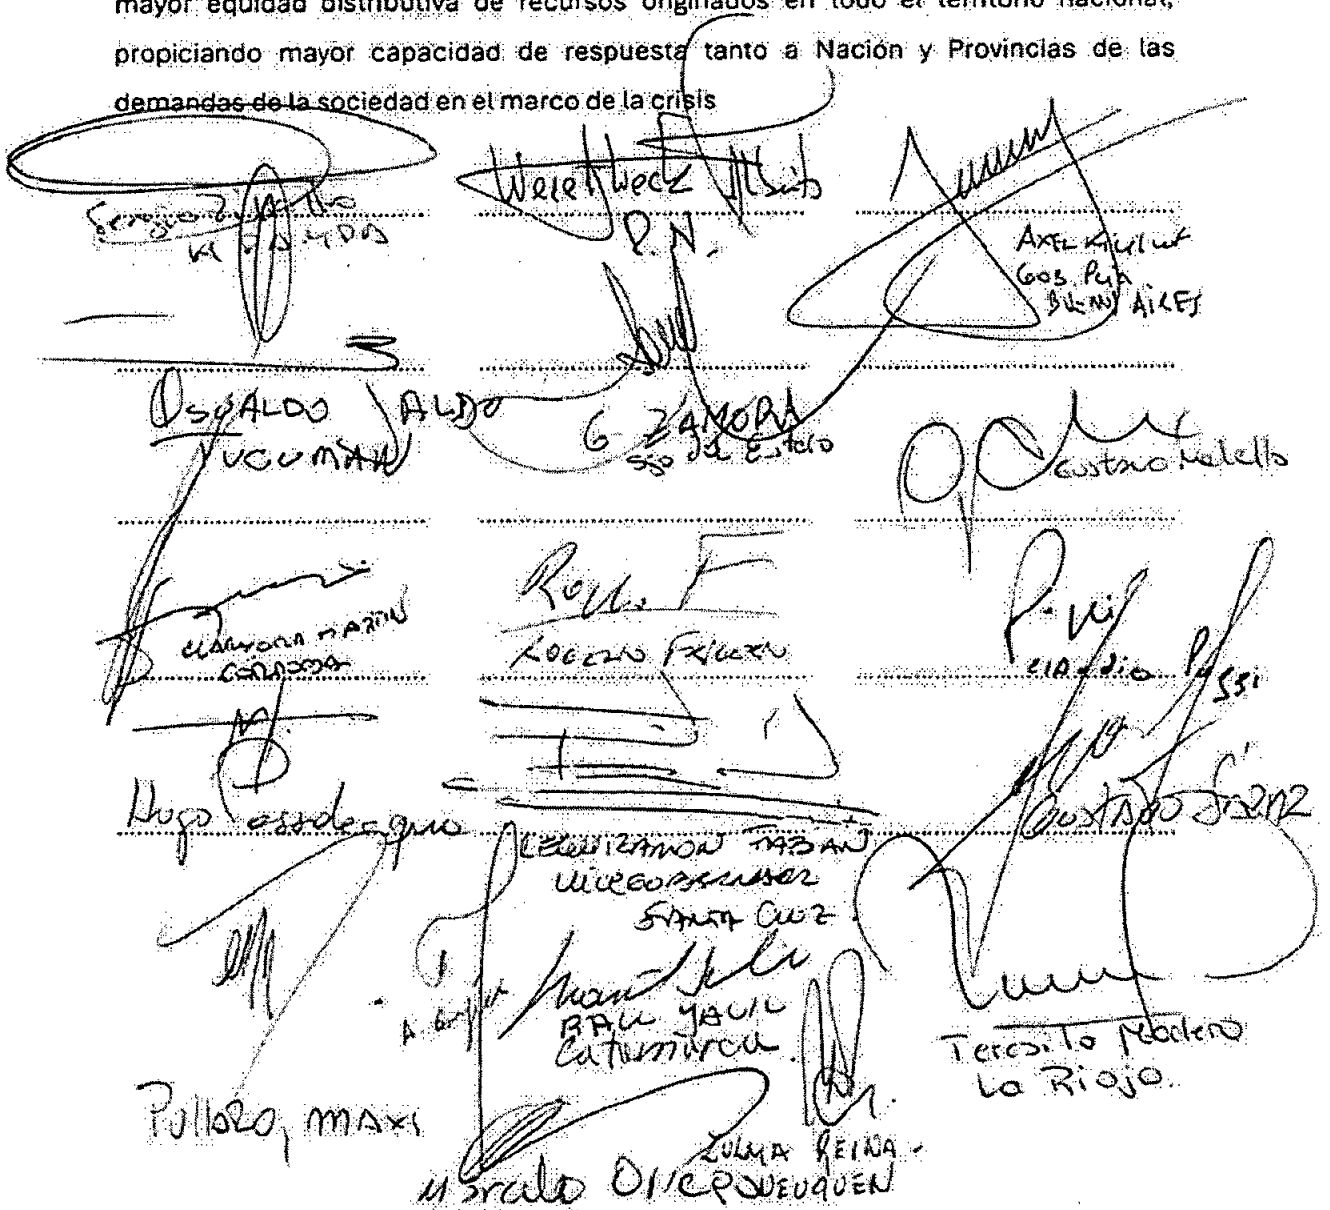 mayor equidad distributiva de recursos originados en todo el territorio nacional,
propiciando mayor capacidad de respuesta tanto a Nación y Provincias de las
demandas de la sociedad en el marco de la crisis
Sergio
Weretilneck Alberto
R.N.
AXEL Kicillof
GOB. PCIA
BUENOS AIRES
OSVALDO JALDO
TUCUMAN
G ZAMORA
Sgo del Estero
Gustavo Melella
LLARYORA MARTIN
CORDOBA
ROGELIO FRIGERIO
Claudio Poggi
Hugo Passalacqua
LEGUIZAMON FABIAN
VICEGOBERNADOR
SANTA CRUZ
Gustavo Sáenz
RAUL JALIL
Catamarca
Teresita Madera
La Rioja.
Pullaro, MAXI
ZULMA REINA -
NEUQUEN
Marcelo Orrego